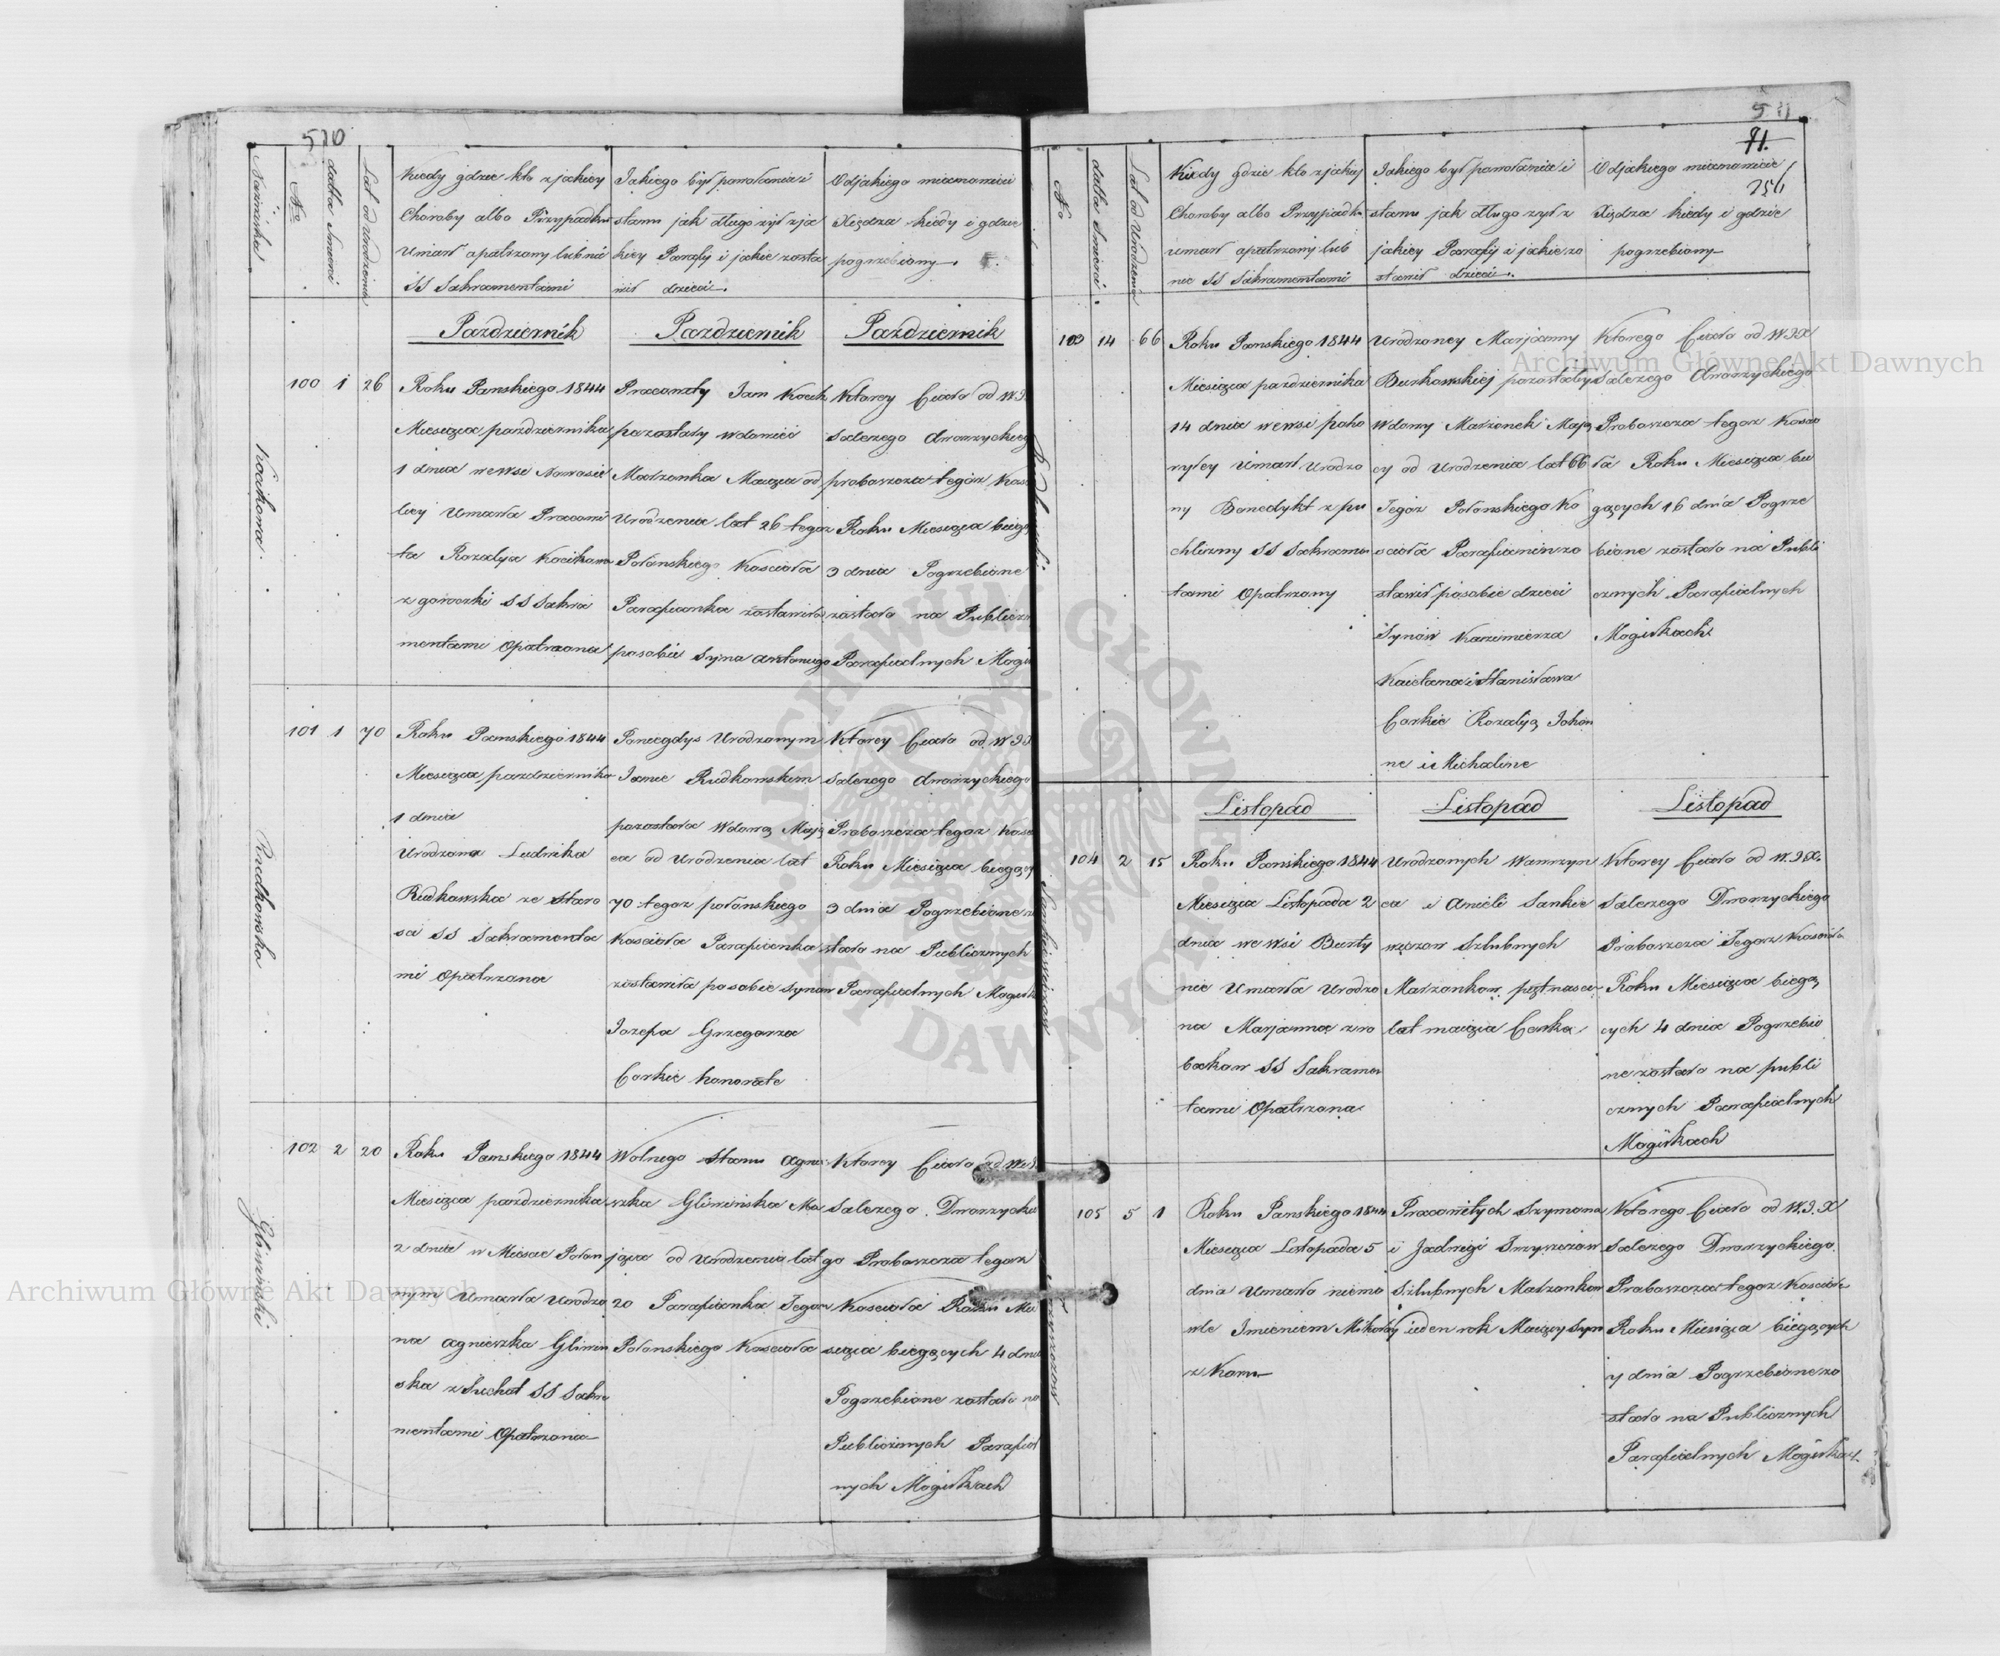 510
Nazwisko
No
data Smerci
Lat od Urodzenia
Kiedy gdzie kto z jakiey
Choroby albo Przypadku
Umarł opatrzony lub nie
SS Sakramentami
Jakiego był powołania i
stanu jak długo żył z ja
kiey Parafij i jakie zosta
wił dzieci.
Od jakiego mianowicie
Xiędza kiedy i gdzie
pogrzebiony.
Pazdziernik
Pazdziernik
Pazdziernik
Kocikowa
100 1 26
Roku Panskiego 1844
Miesiąca pazdziernika
1 dnia we wsi Nawosie
licy Umarła Pracowi
ta Rozalya Kocikowa
z gorączki SS Sakra
mentami Opatrzona
Pracowity Jan Kocik
pozostały wdowiec
Małżonka Maiąca od
Urodzenia lat 26 tegoz
Połonskiego Koscioła
Parafianka zostawiła
posobie Syna Antoniego
Ktorey Ciało od W.J.
Salezego Dworzyckieg
proboszcza tegoz Kosc
Roku Miesiąca bieżą
3 dnia Pogrzebione
zostało na Publiczn
Parafialnych Mogił
Rudkowska
101 1 70
Roku Panskiego 1844
Miesiąca pazdziernika
1 dnia
Urodzona Ludwika
Rudkowska ze staro
sci SS Sakramenta
mi Opatrzona
Poniegdys Urodzonym
Janie Rudkowskim
pozostała Wdową Mają
ca od Urodzenia lat
70 tegoz połonskiego
Koscioła Parafianka
zostawiła posobie synow
Jozefa Grzegorza
Corkie honorate
Ktorey Ciało od W JX
Salezego Dworzyckiego
Proboszcza tegoz Kosc
Roku Miesiąca biegący
3 dnia Pogrzebione z
stało na Publicznych
Parafialnych Mogiłk
Gliminski
102 2 20
Roku Panskiego 1844
Miesiąca pazdziernika
2 dnia w Miescie Połon
nym Umarła Urodzo
na Agnieszka Glimin
ska z Suchot SS Sakra
mentami Opatrzona
Wolnego Stanu Agnie
szka Gliminska Ma
jąca od Urodzenia lat
20 Parafianka Tegoz
Połonskiego Koscioła
Ktorey Ciało od W.J.
Salezego Dworzyckie
go Proboszcza tegoz
Koscioła Roku Mie
siąca biegących 4 dnia
Pogrzebione zostało na
Publicznych Parafial
nych Mogiłkach
511
91.
256
No
data Smerci
Lat od Urodzenia
Kiedy gdzie kto z jakiej
Choroby albo Przypadku
umarł opatrzony lub
nie SS Sakramentami
Jakiego był powołania i
stanu jak długo żył z
jakiey Parafij i jakie zo
stawił dzieci.
Od jakiego mianowicie
Xiędza kiedy i gdzie
pogrzebiony
103 14 66
Roku Panskiego 1844
Miesiąca pazdziernika
14 dnia we wsi poho
ryley Umarł Urodzo
ny Benedykt z pu
chlizny SS Sakramen
tami Opatrzony
Urodzoney Marjanny
Burkowskiej pozostały
Wdowy Małżonek Mają
cy od Urodzenia lat 66
Tegoz Połonskiego Ko
scioła Parafianin zo
stawił posobie dzieci
Synow Kazimierza
Kaietana i Stanisława
Corkie Rozalją Johan
ne i Michaline
Ktorego Ciało od W.JX
Salezego Dworzyckiego
Probosszcza tegoz Koscio
ła Roku Miesiąca bie
gących 16 dnia Pogrze
bione zostało na Publi
cznych Parafialnych
Mogiłkach
Listopad
Listopad
Listopad
Sankiewiczow
104 2 15
Roku Panskiego 1844
Miesiąca Listopada 2
dnia we wsi Burty
nie Umarła Urodzo
na Marjanna z ro
bakow SS Sakramen
tami Opatrzona
Urodzonych Wawrzyn
ca i Anieli Sankie
wiczow Szlubnych
Małżonkow piętnascie
lat maiąca Corka
Ktorey Ciało od W.JX.
Salezego Dworzyckiego
Probosszcza Tegoz Koscioła
Roku Miesiąca biegą
cych 4 dnia Pogrzebio
ne zostało na publi
cznych Parafialnych
Mogiłkach
105 5 1
Roku Panskiego 1844
Miesiąca Listopada 5
dnia Umarło niemo
wle Imieniem Mikołay
z Koru
Pracowitych Szymona
i Jadwigi
Szlubnych Małżonkow
ieden rok Maiący Syn
Ktorego Ciało od W.J.X
Salezego Dworzyckiego
Probosszcza tegoz Koscioła
Roku Miesiąca biegących
7 dnia Pogrzebione zo
stało na Publicznych
Parafialnych Mogiłkach
Archiwum Główne Akt Dawnych
Archiwum Główne Akt Dawnych
ARCHIWUM GŁÓWNE AKT DAWNYCH